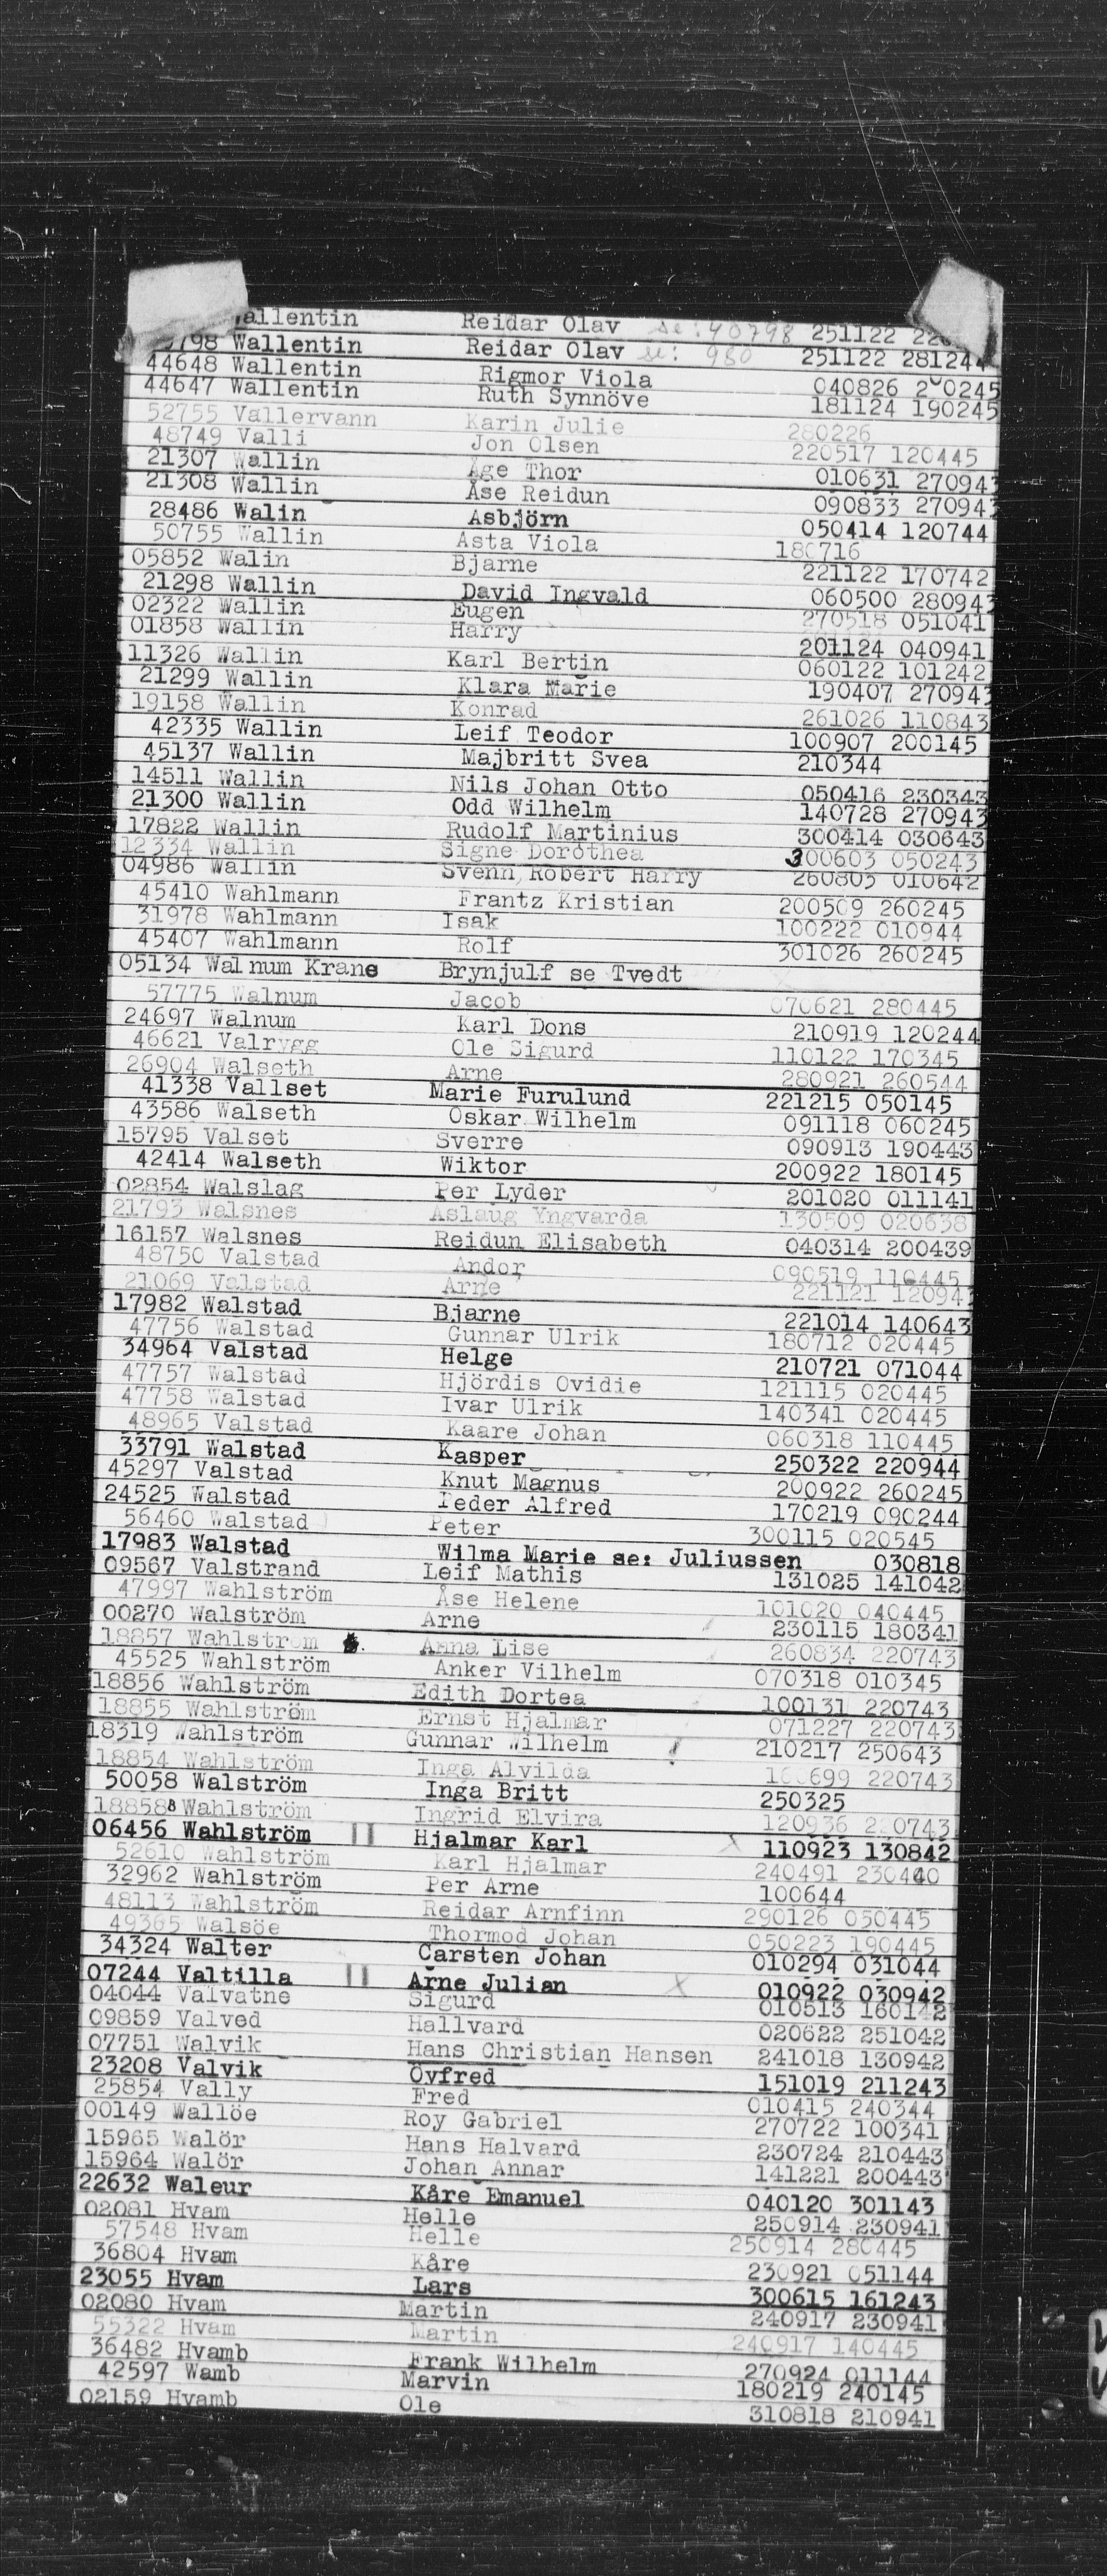 allentin Reidar Olav se: 40798 251122
798 Wallentin Reidar Olav se: 980 251122 281244
44648 Wallentin Rigmor Viola 040826 2 0245
44647 Wallentin Ruth Synnöve 181124 190245
52755 Vallervann Karin Julie 280226
48749 Valli Jon Olsen 220517 120445
21307 Wallin Åge Thor 010631 270943
21308 Wallin Åse Reidun 090833 270943
28486 Walin Asbjörn 050414 120744
50755 Wallin Asta Viola 180716
05852 Walin Bjarne 221122 170742
21298 Wallin David Ingvald 060500 280943
02322 Wallin Eugen 270518 051041
01858 Wallin Harry 201124 040941
11326 Wallin Karl Bertin 060122 101242
21299 Wallin Klara Marie 190407 270943
19158 Wallin Konrad 261026 110843
42335 Wallin Leif Teodor 100907 200145
45137 Wallin Majbritt Svea 210344
14511 Wallin Nils Johan Otto 050416 230343
21300 Wallin Odd Wilhelm 140728 270943
17822 Wallin Rudolf Martinius 300414 030643
12334 Wallin Signe Dorothea 300603 050243
04986 Wallin Svenn, Robert Harry 260805 010642
45410 Wahlmann Frantz Kristian 200509 260245
31978 Wahlmann Isak 100222 010944
45407 Wahlmann Rolf 301026 260245
05134 Walnum Krane Brynjulf se Tvedt
57775 Walnum Jacob 070621 280445
24697 Walnum Karl Dons 210919 120244
46621 Valrygg Ole Sigurd 110122 170345
26904 Walseth Arne 280921 260544
41338 Vallset Marie Furulund 221215 050145
43586 Walseth Oskar Wilhelm 091118 060245
15795 Valset Sverre 090913 190443
42414 Walseth Wiktor 200922 180145
02854 Walslag Per Lyder 201020 011141
21793 Walsnes Aslaug Yngvarda 130509 020638
16157 Walsnes Reidun Elisabeth 040314 200439
48750 Valstad Andor 090519 110445
21069 Valstad Arne 221121 120943
17982 Walstad Bjarne 221014 140643
47756 Walstad Gunnar Ulrik 180712 020445
34964 Valstad Helge 210721 071044
47757 Walstad Hjördis Ovidie 121115 020445
47758 Walstad Ivar Ulrik 140341 020445
48965 Valstad Kaare Johan 060318 110445
33791 Walstad Kasper 250322 220944
45297 Valstad Knut Magnus 200922 260245
24525 Walstad Peder Alfred 170219 090244
56460 Walstad Peter 300115 020545
17983 Walstad Wilma Marie se: Juliussen 030818
09567 Valstrand Leif Mathis 131025 141042
47997 Wahlström Åse Helene 101020 040445
00270 Walström Arne 230115 180341
18857 Wahlstrom Anna Lise 260834 220743
45525 Wahlström Anker Vilhelm 070318 010345
18856 Wahlström Edith Dortea 100131 220743
18855 Wahlström Ernst Hjalmar 071227 220743
18319 Wahlström Gunnar Wilhelm 210217 250643
18854 Wahlström Inga Alvilda 1 0699 220743
50058 Walström Inga Britt 250325
18858 Wahlström Ingrid Elvira 120936 220743
06456 Wahlström || Hjalmar Karl x 110923 130842
52610 Wahlström Karl Hjalmar 240491 230440
32962 Wahlström Per Arne 100644
48113 Wahlström Reidar Arnfinn 290126 050445
49365 Walsöe Thormod Johan 050223 190445
34324 Walter Carsten Johan 010294 031044
07244 Valtilla || Arne Julian X 010922 030942
04044 Valvatne Sigurd 010513 160142
09859 Valved Hallvard 020622 251042
07751 Walvik Hans Christian Hansen 241018 130942
23208 Valvik Ovfred 151019 211243
25854 Vally Fred 010415 240344
00149 Wallöe Roy Gabriel 270722 100341
15965 Walör Hans Halvard 230724 210443
15964 Walör Johan Annar 141221 200443
22632 Waleur Kåre Emanuel 040120 301143
02081 Hvam Helle 250914 230941
57548 Hvam Helle 250914 280445
36804 Hvam Kåre 230921 051144
23055 Hvam Lars 300615 161243
02080 Hvam Martin 240917 230941
55322 Hvam Martin 240917 140445
36482 Hvamb Frank Wilhelm 270924 011144
42597 Wamb Marvin 180219 240145
02159 Hvamb Ole 310818 210941